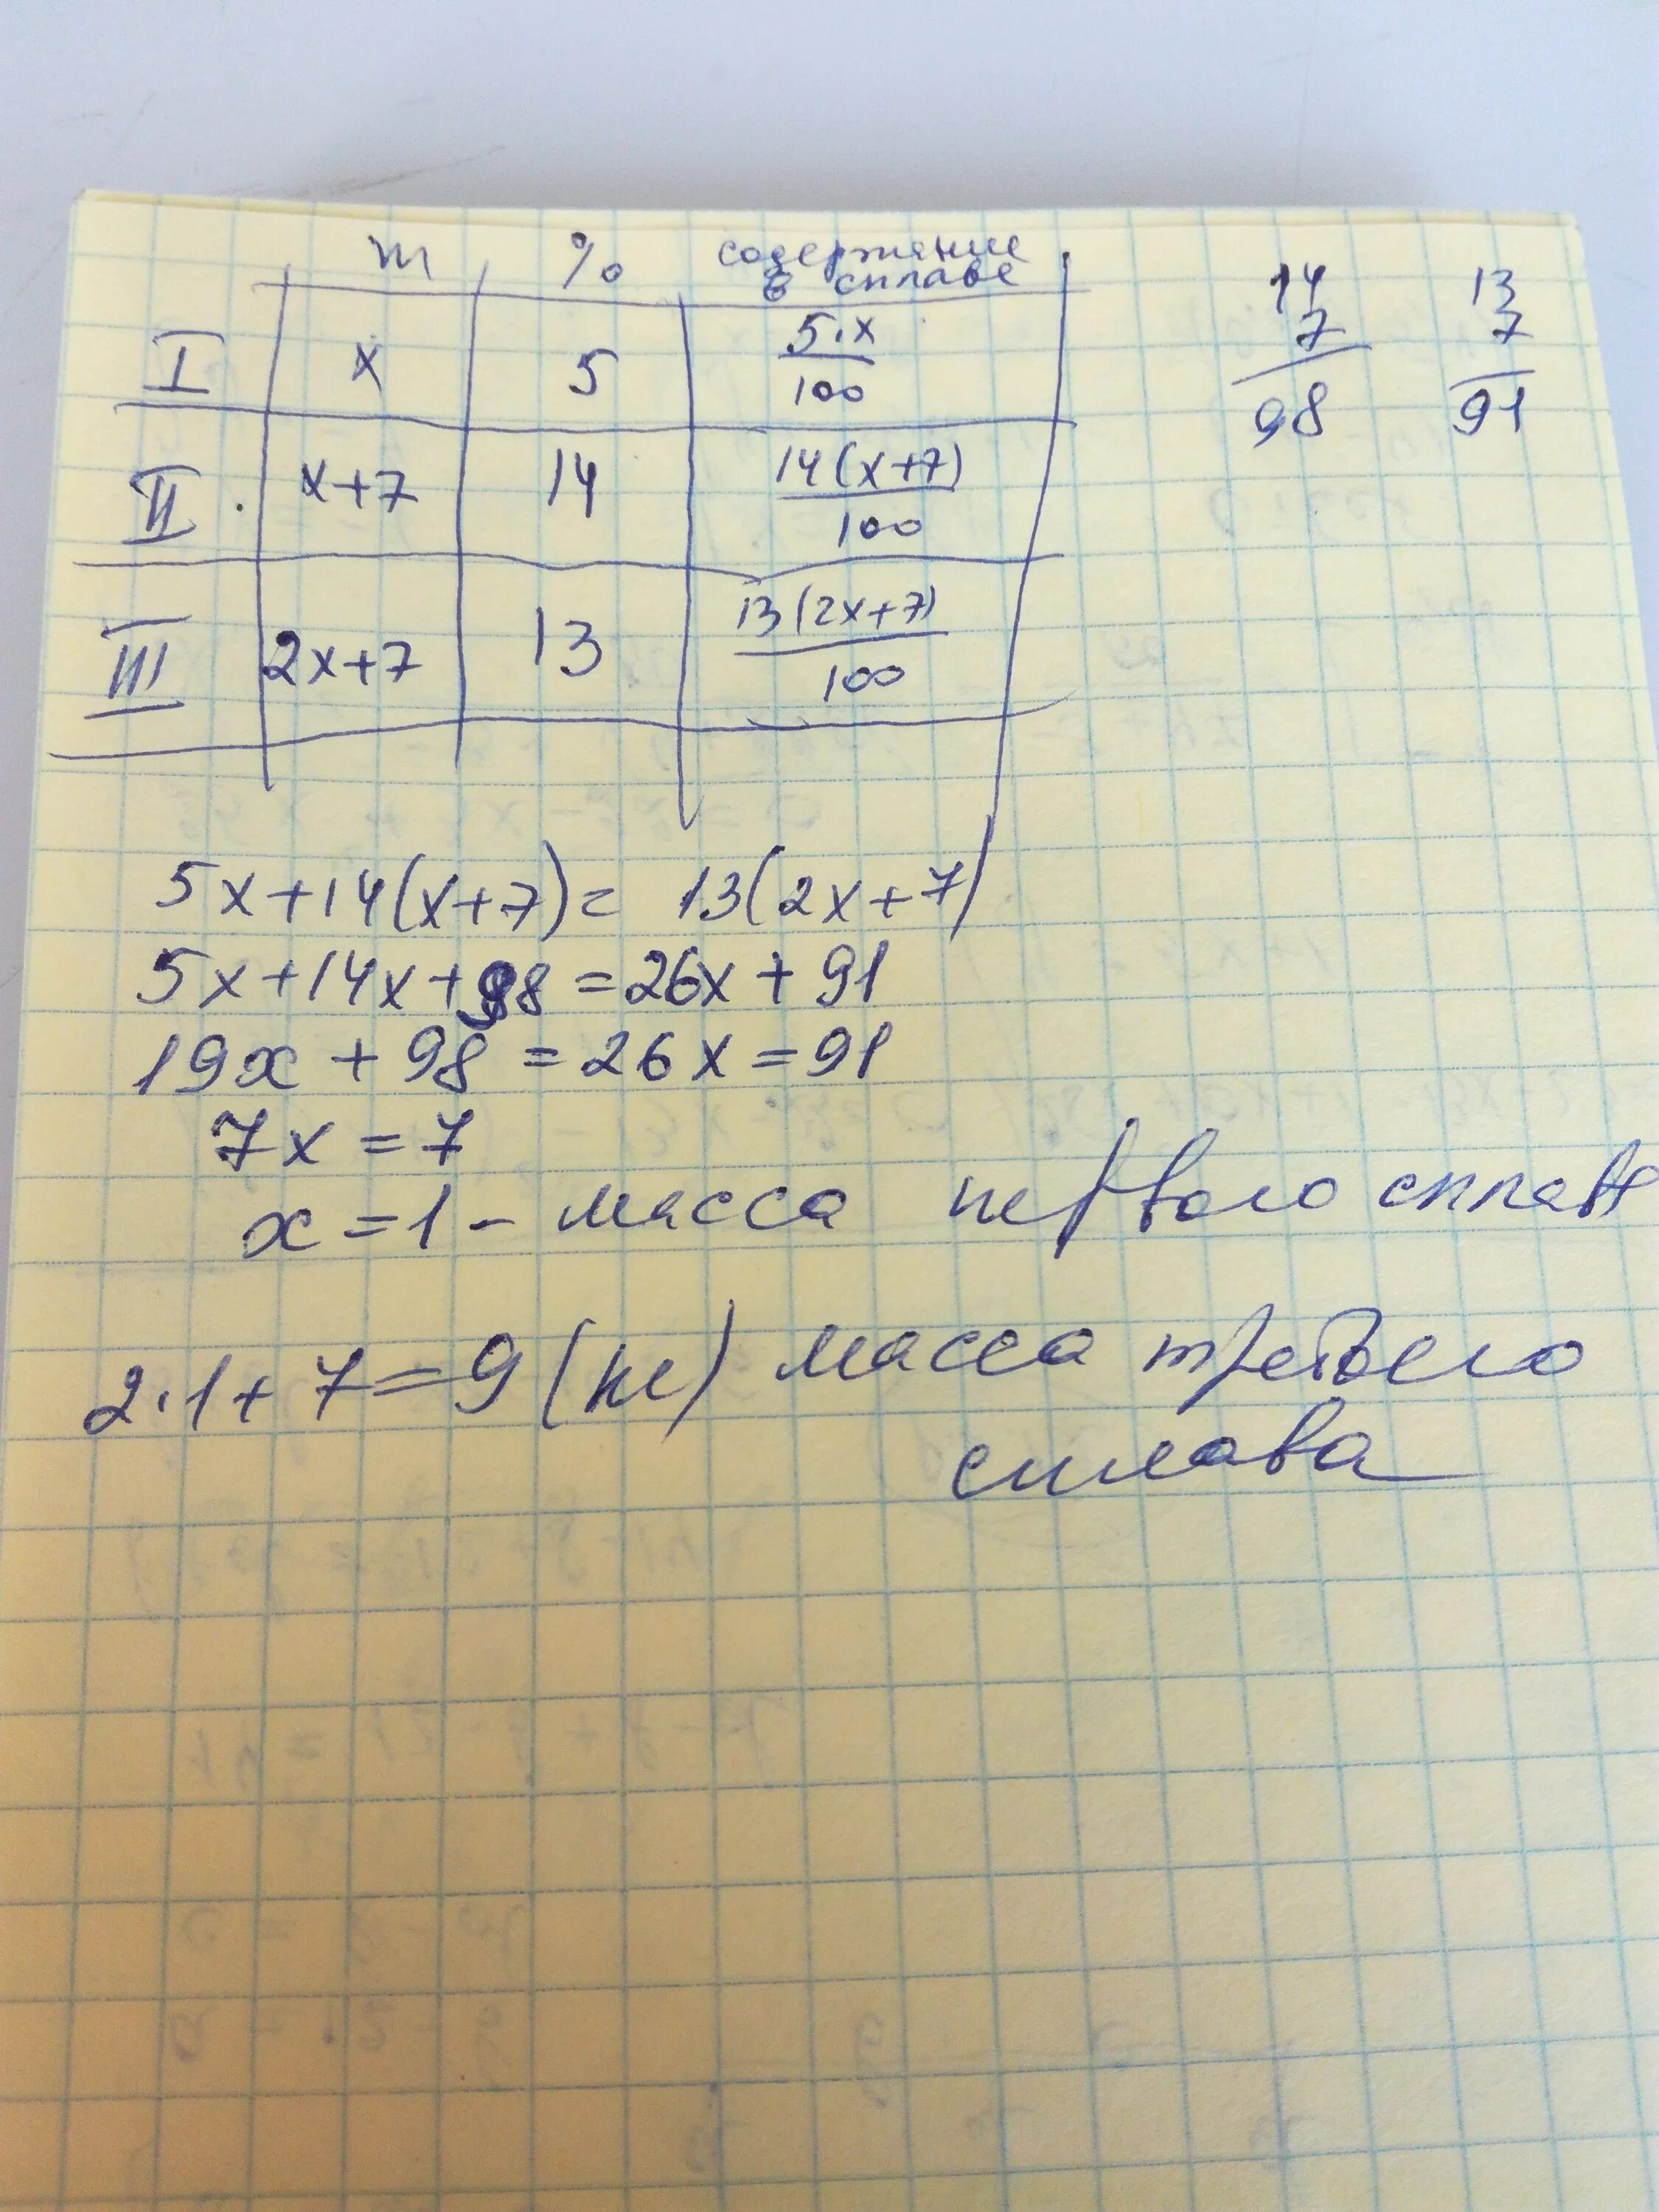 m % содержание
в сплаве
I x 5 5·x/100
II x+7 14 14(x+7)/100
III 2x+7 13 13(2x+7)/100
14
7
98
13
7
91
5x+14(x+7)= 13(2x+7)
5x+14x+98=26x+91
19x+98=26x=91
7x=7
x=1- масса первого сплава
2·1+7=9(кг) масса третьего
сплава